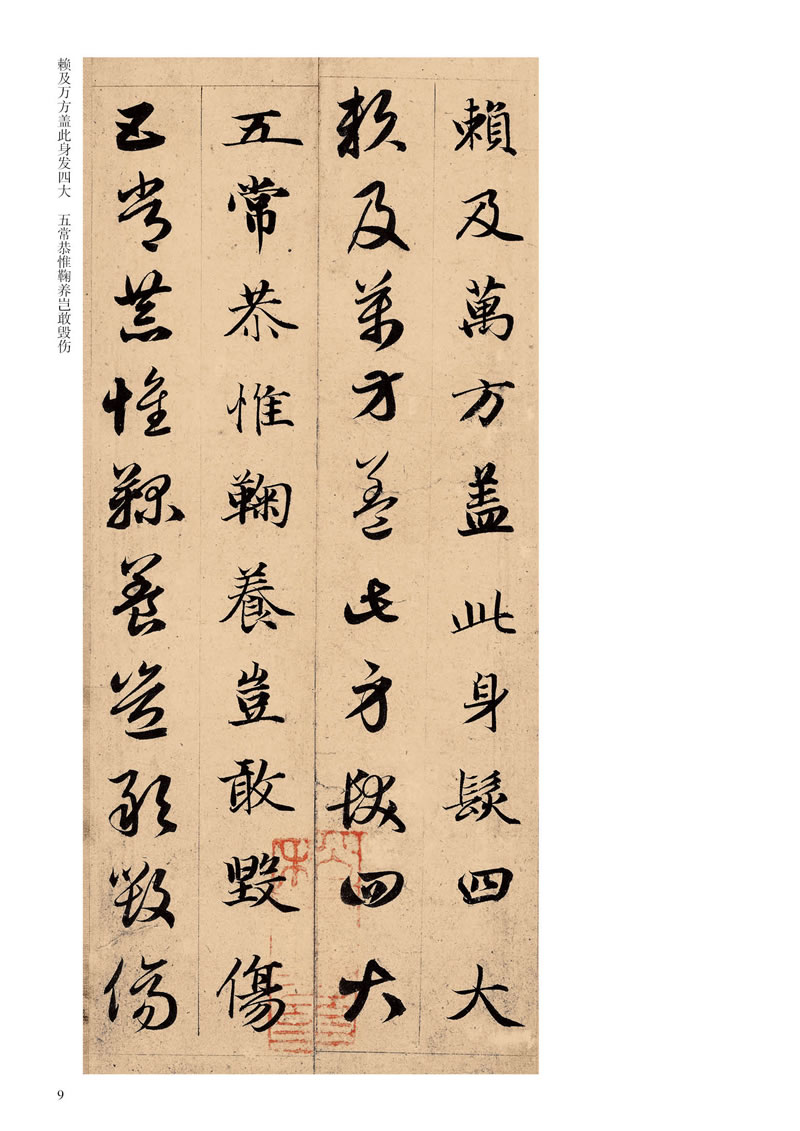 賴及萬方蓋此身髮四大
賴及萬方蓋此身髮四大
五常恭惟鞠養豈敢毀傷
五常恭惟鞠養豈敢毀傷
赖及万方盖此身发四大　五常恭惟鞠养岂敢毁伤
9